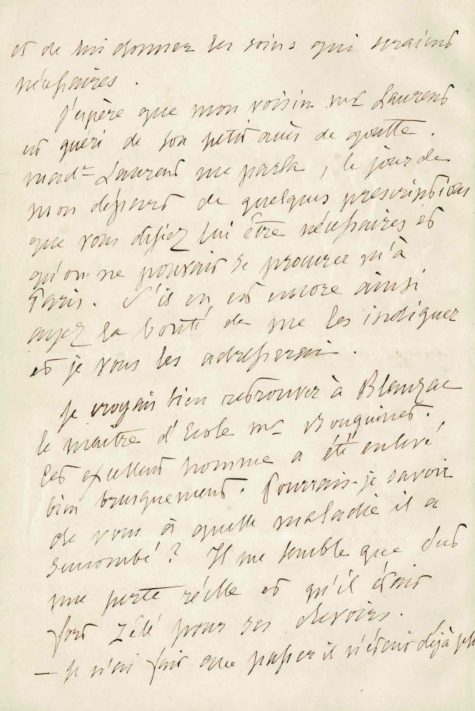 et de lui donner les soins qui seraient
nécessaires.
J'espère que mon voisin Mr Laurent
est guéri de son petit accès de goutte.
Made Laurent me parla, le jour de
mon départ de quelques prescriptions
que vous disiez lui être nécessaires et
qu'on ne pouvait se procurer qu'à
Paris. S'il en est encore ainsi
ayez la bonté de me les indiquer
et je vous les adresserai.
Je croyais bien retrouver à Blanzac
le maître d'Ecole Mr Bouguinet.
Cet excellent homme a été enlevé,
bien brusquement. Pourrais-je savoir
de vous à quelle maladie il a
succombé? Il me semble que c'est
une perte réelle et qu'il était
fort zélé pour ses devoirs.
— Je n'ai fait que passer il n'était déjà